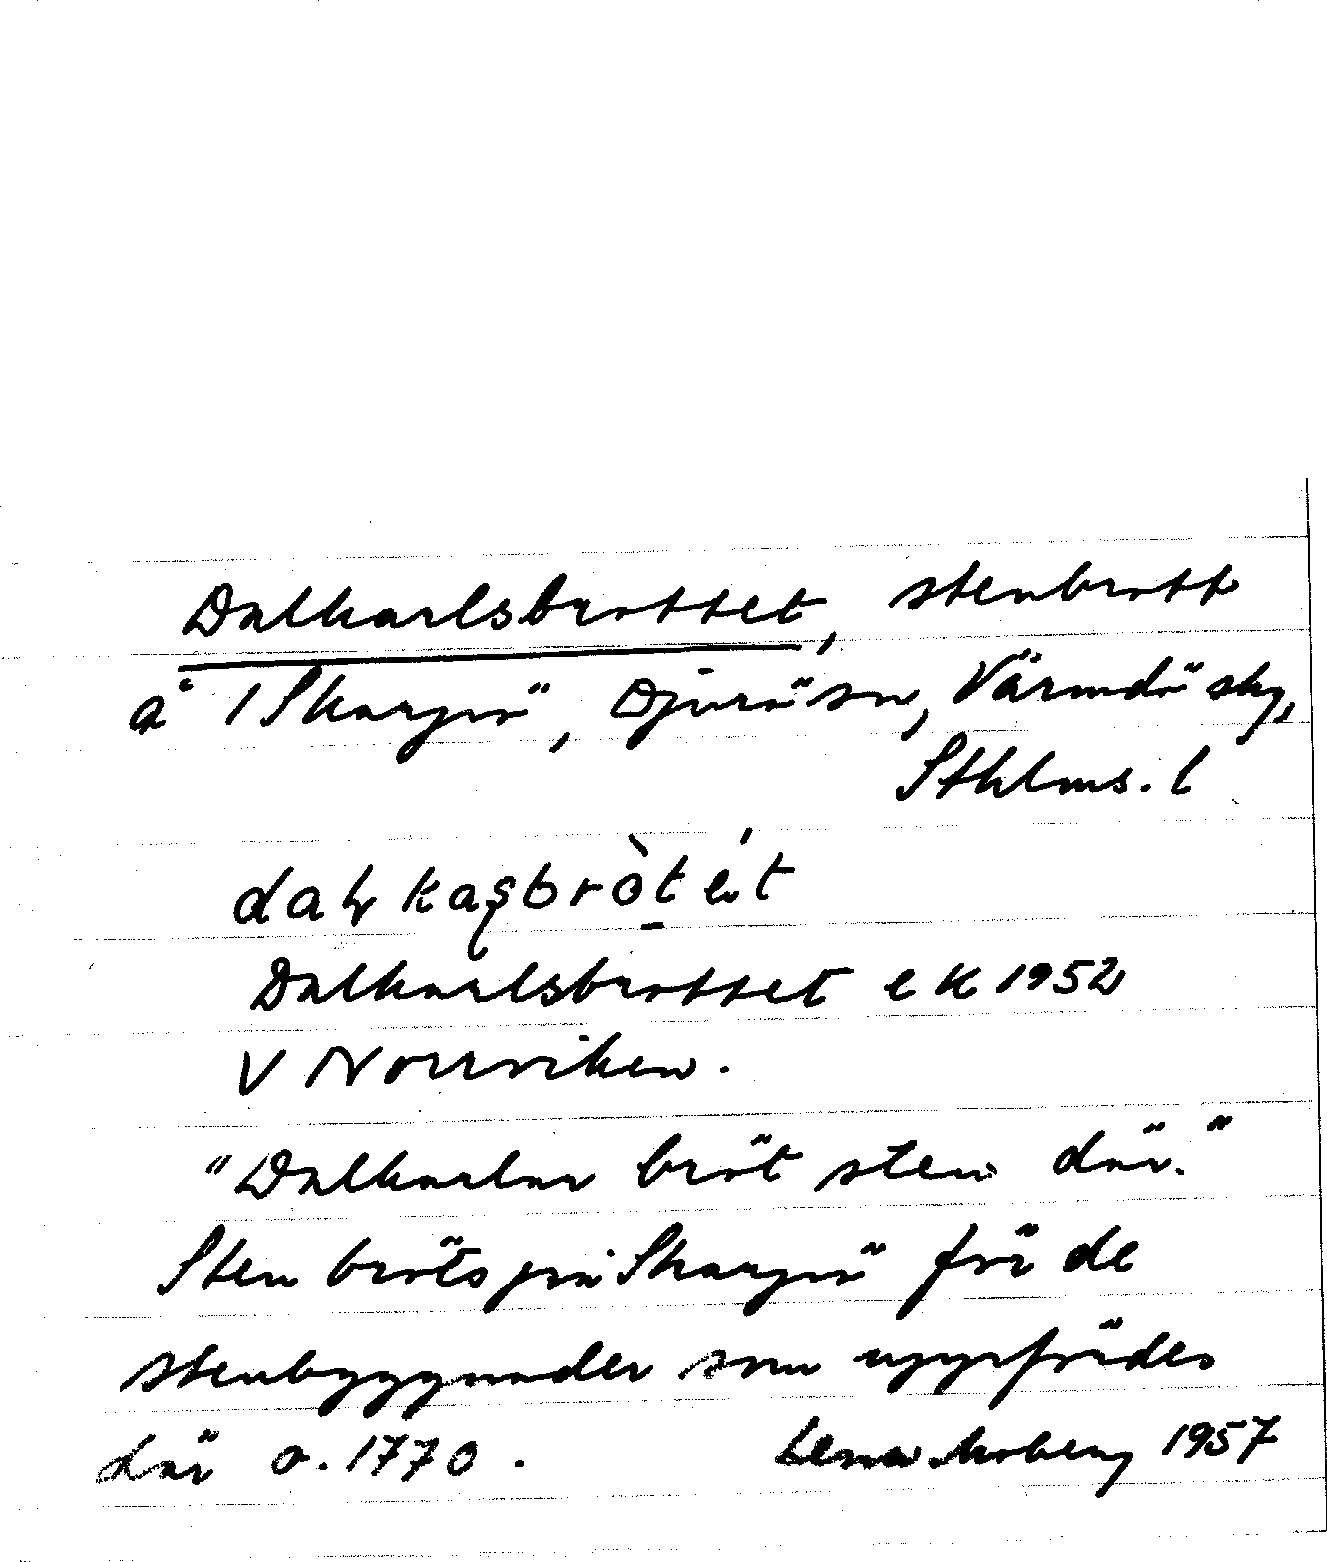 Dalkarlsbrottet, stenbrott
å 1 Skarpö, Djurö sn, Värmdö skg,
Sthlms. l
Dalkarlsbrottet e k 1952
V Norrviken.
"Dalkarlar bröt sten där."
Sten bröts på Skarpö för de
stenbyggnader som uppfördes
där o. 1770.
Lena Moberg 1957